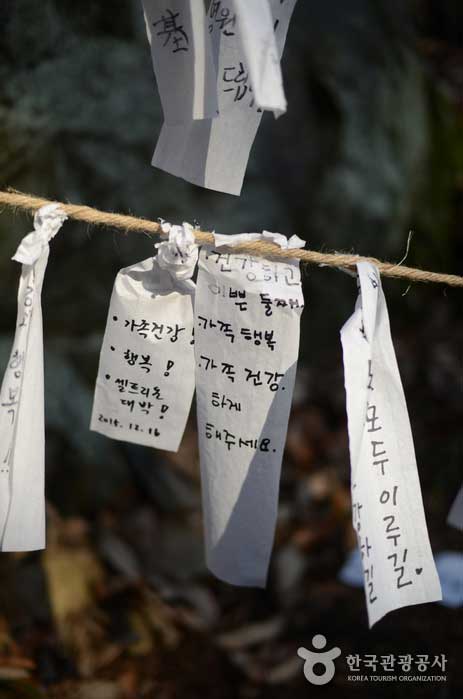 원
드립
행복!!
· 가족건강!
· 행복!
· 셀트리온
대박!
2015. 12. 16
건강하고
이쁜 둘째.
가족 행복
가족 건강.
하게
해주세요.
모두 이루길.
한국관광공사
KOREA TOURISM ORGANIZATION